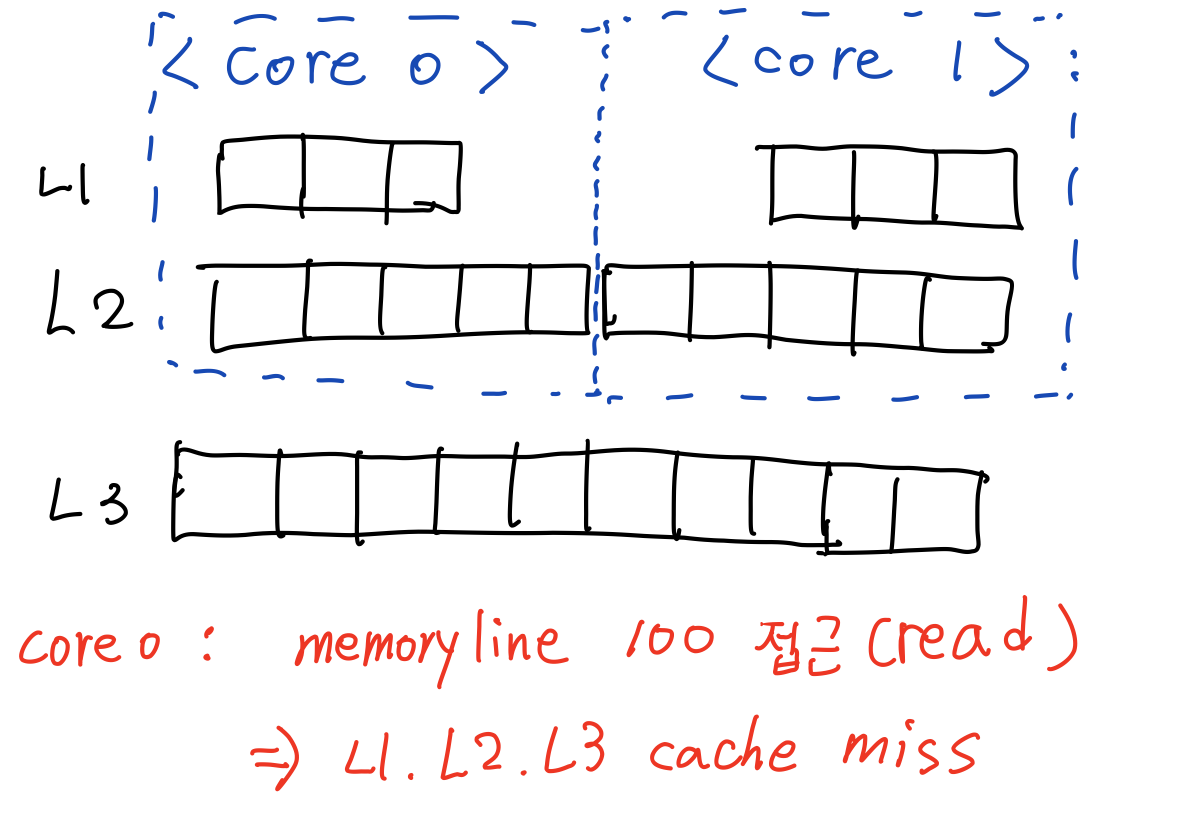 <core 0> <core 1>
L1
L2
L3
core 0 : memory line 100 접근 (read)
=> L1. L2. L3 cache miss